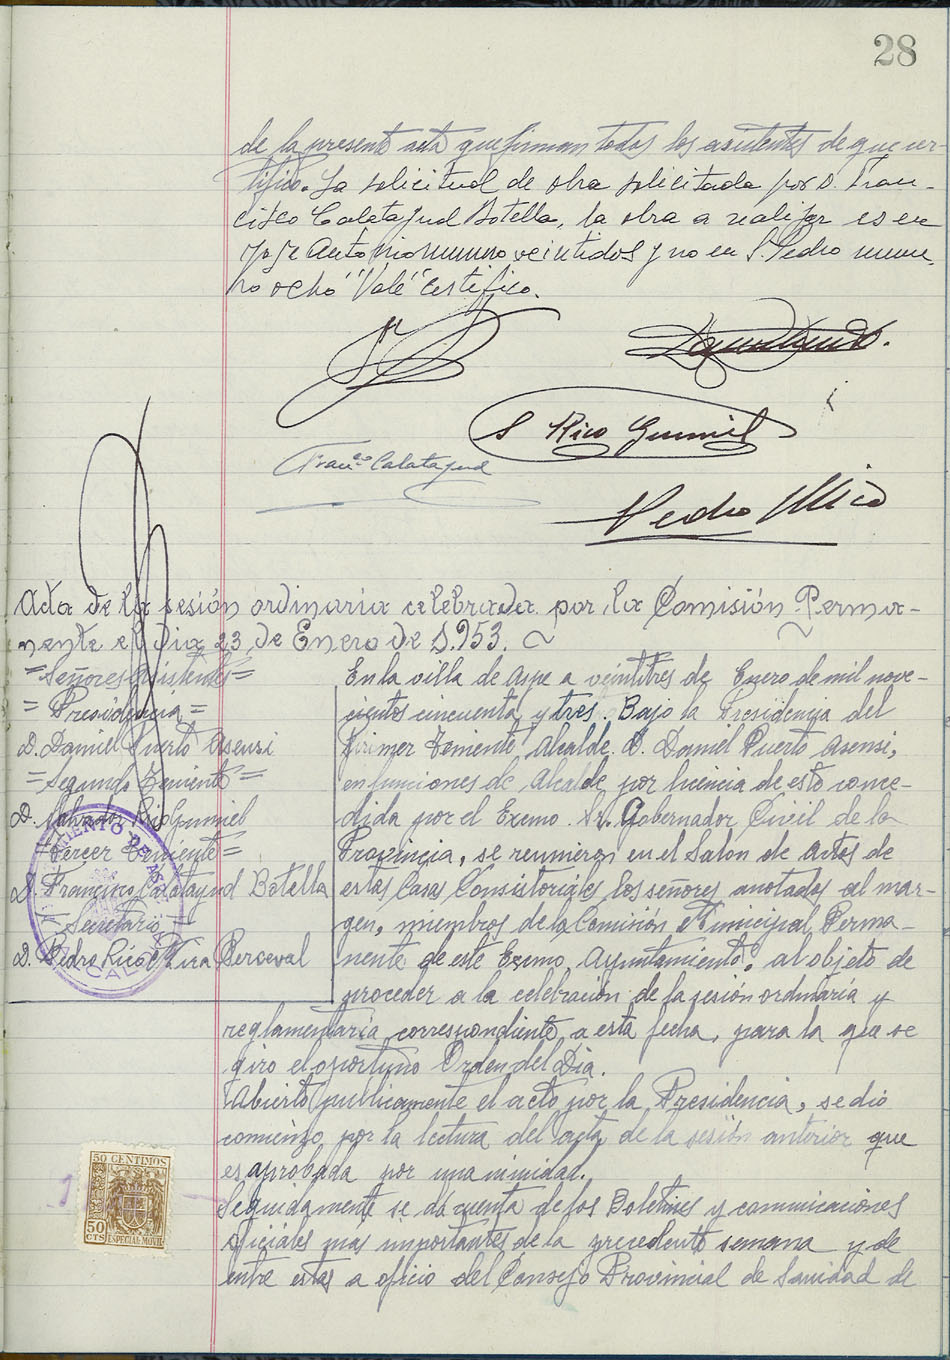 28
de la presente acta que firman todos los asistentes de que cer-
tifico. La solicitud de obra solicitada por D. Fran-
cisco Calatayud Botella, la obra a realizar es en
José Antonio numero veintidos y no en S. Pedro nume-
ro ocho "Vale" Certifico.
S Rico Gumiel
Franco Calatayud
Pedro Rico
Acta de la sesión ordinaria celebrada por la Comisión Perma-
nente el dia 23 de Enero de 1.953.
=Señores Asistentes=
=Presidencia=
D. Daniel Puerto Asensi
=Segundo Teniente=
D. Salvador Rico Gumiel
=Tercer Teniente=
D. Francisco Calatayud Botella
=Secretario=
D. Pedro Rico Mira Perceval
En la villa de Aspe a veintitres de Enero de mil nove-
cientos cincuenta y tres. Bajo la Presidencia del
Primer Teniente Alcalde D. Daniel Puerto Asensi,
en funciones de Alcalde por licencia de esto conce-
dida por el Excmo. Sr. Gobernador Civil de la
Provincia, se reunieron en el Salon de Actos de
estas Casas Consistoriales los señores anotados al mar-
gen, miembros de la Comisión Municipal Perma-
nente de este Excmo. Ayuntamiento, al objeto de
proceder a la celebración de la sesión ordinaria y
reglamentaria correspondiente a esta fecha, para la que se
giro el oportuno Orden del Dia.
Abierto publicamente el acto por la Presidencia, se dió
comienzo por la lectura del acta de la sesión anterior que
es aprobada por unanimidad.
Seguidamente se dá cuenta de los Boletines y comunicaciones
oficiales mas importantes de la precedente semana y de
entre estas a oficio del Consejo Provincial de Sanidad de
50 CENTIMOS
50
CTS
ESPECIAL MOVIL